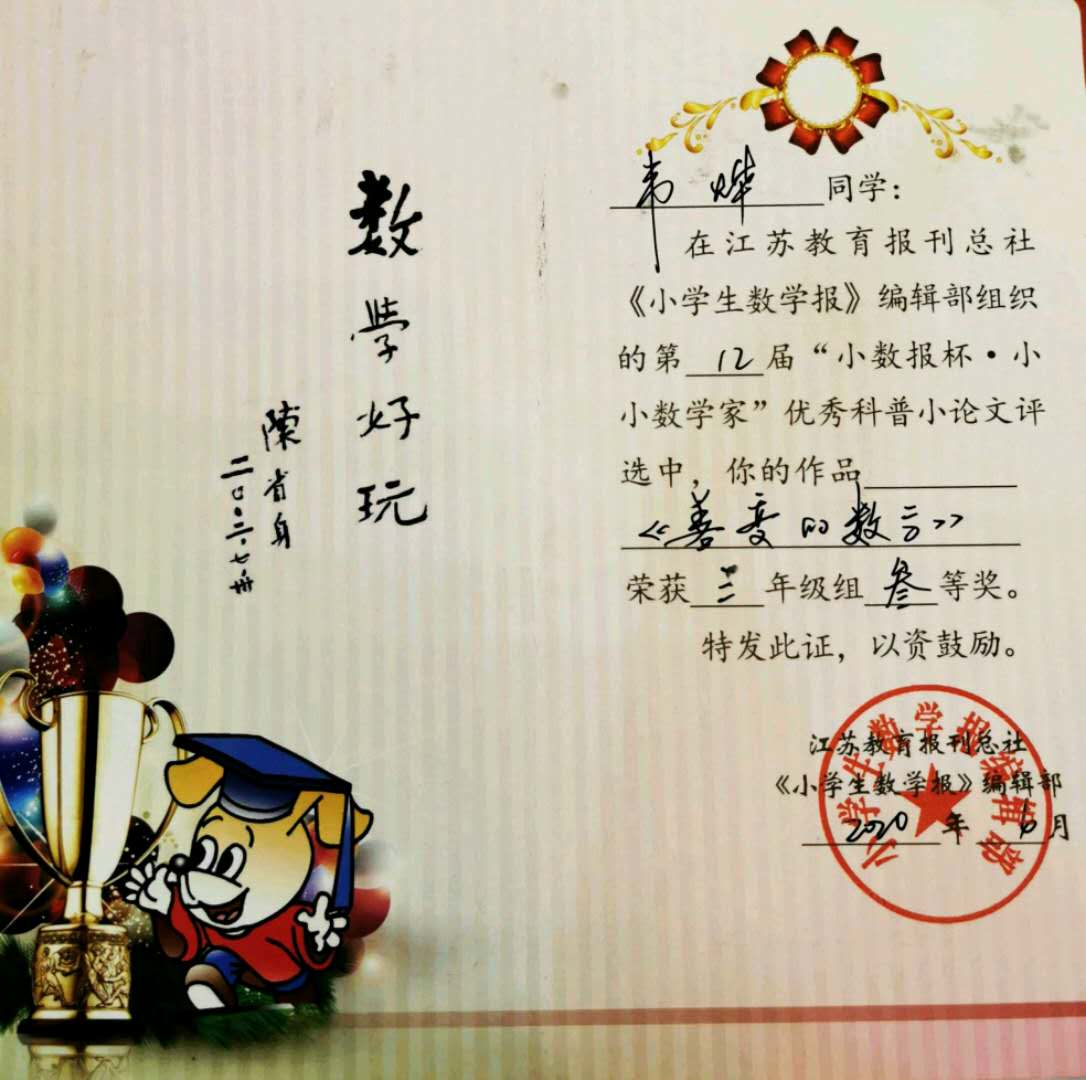 数学好玩
陳省身
二〇〇二·七·卅
韦烨同学：
在江苏教育报刊总社
《小学生数学报》编辑部组织
的第12届“小数报杯·小
小数学家”优秀科普小论文评
选中，你的作品
《善变的数方》
荣获三年级组叁等奖。
特发此证，以资鼓励。
江苏教育报刊总社
《小学生数学报》编辑部
2020年6月
小学生数学报编辑部